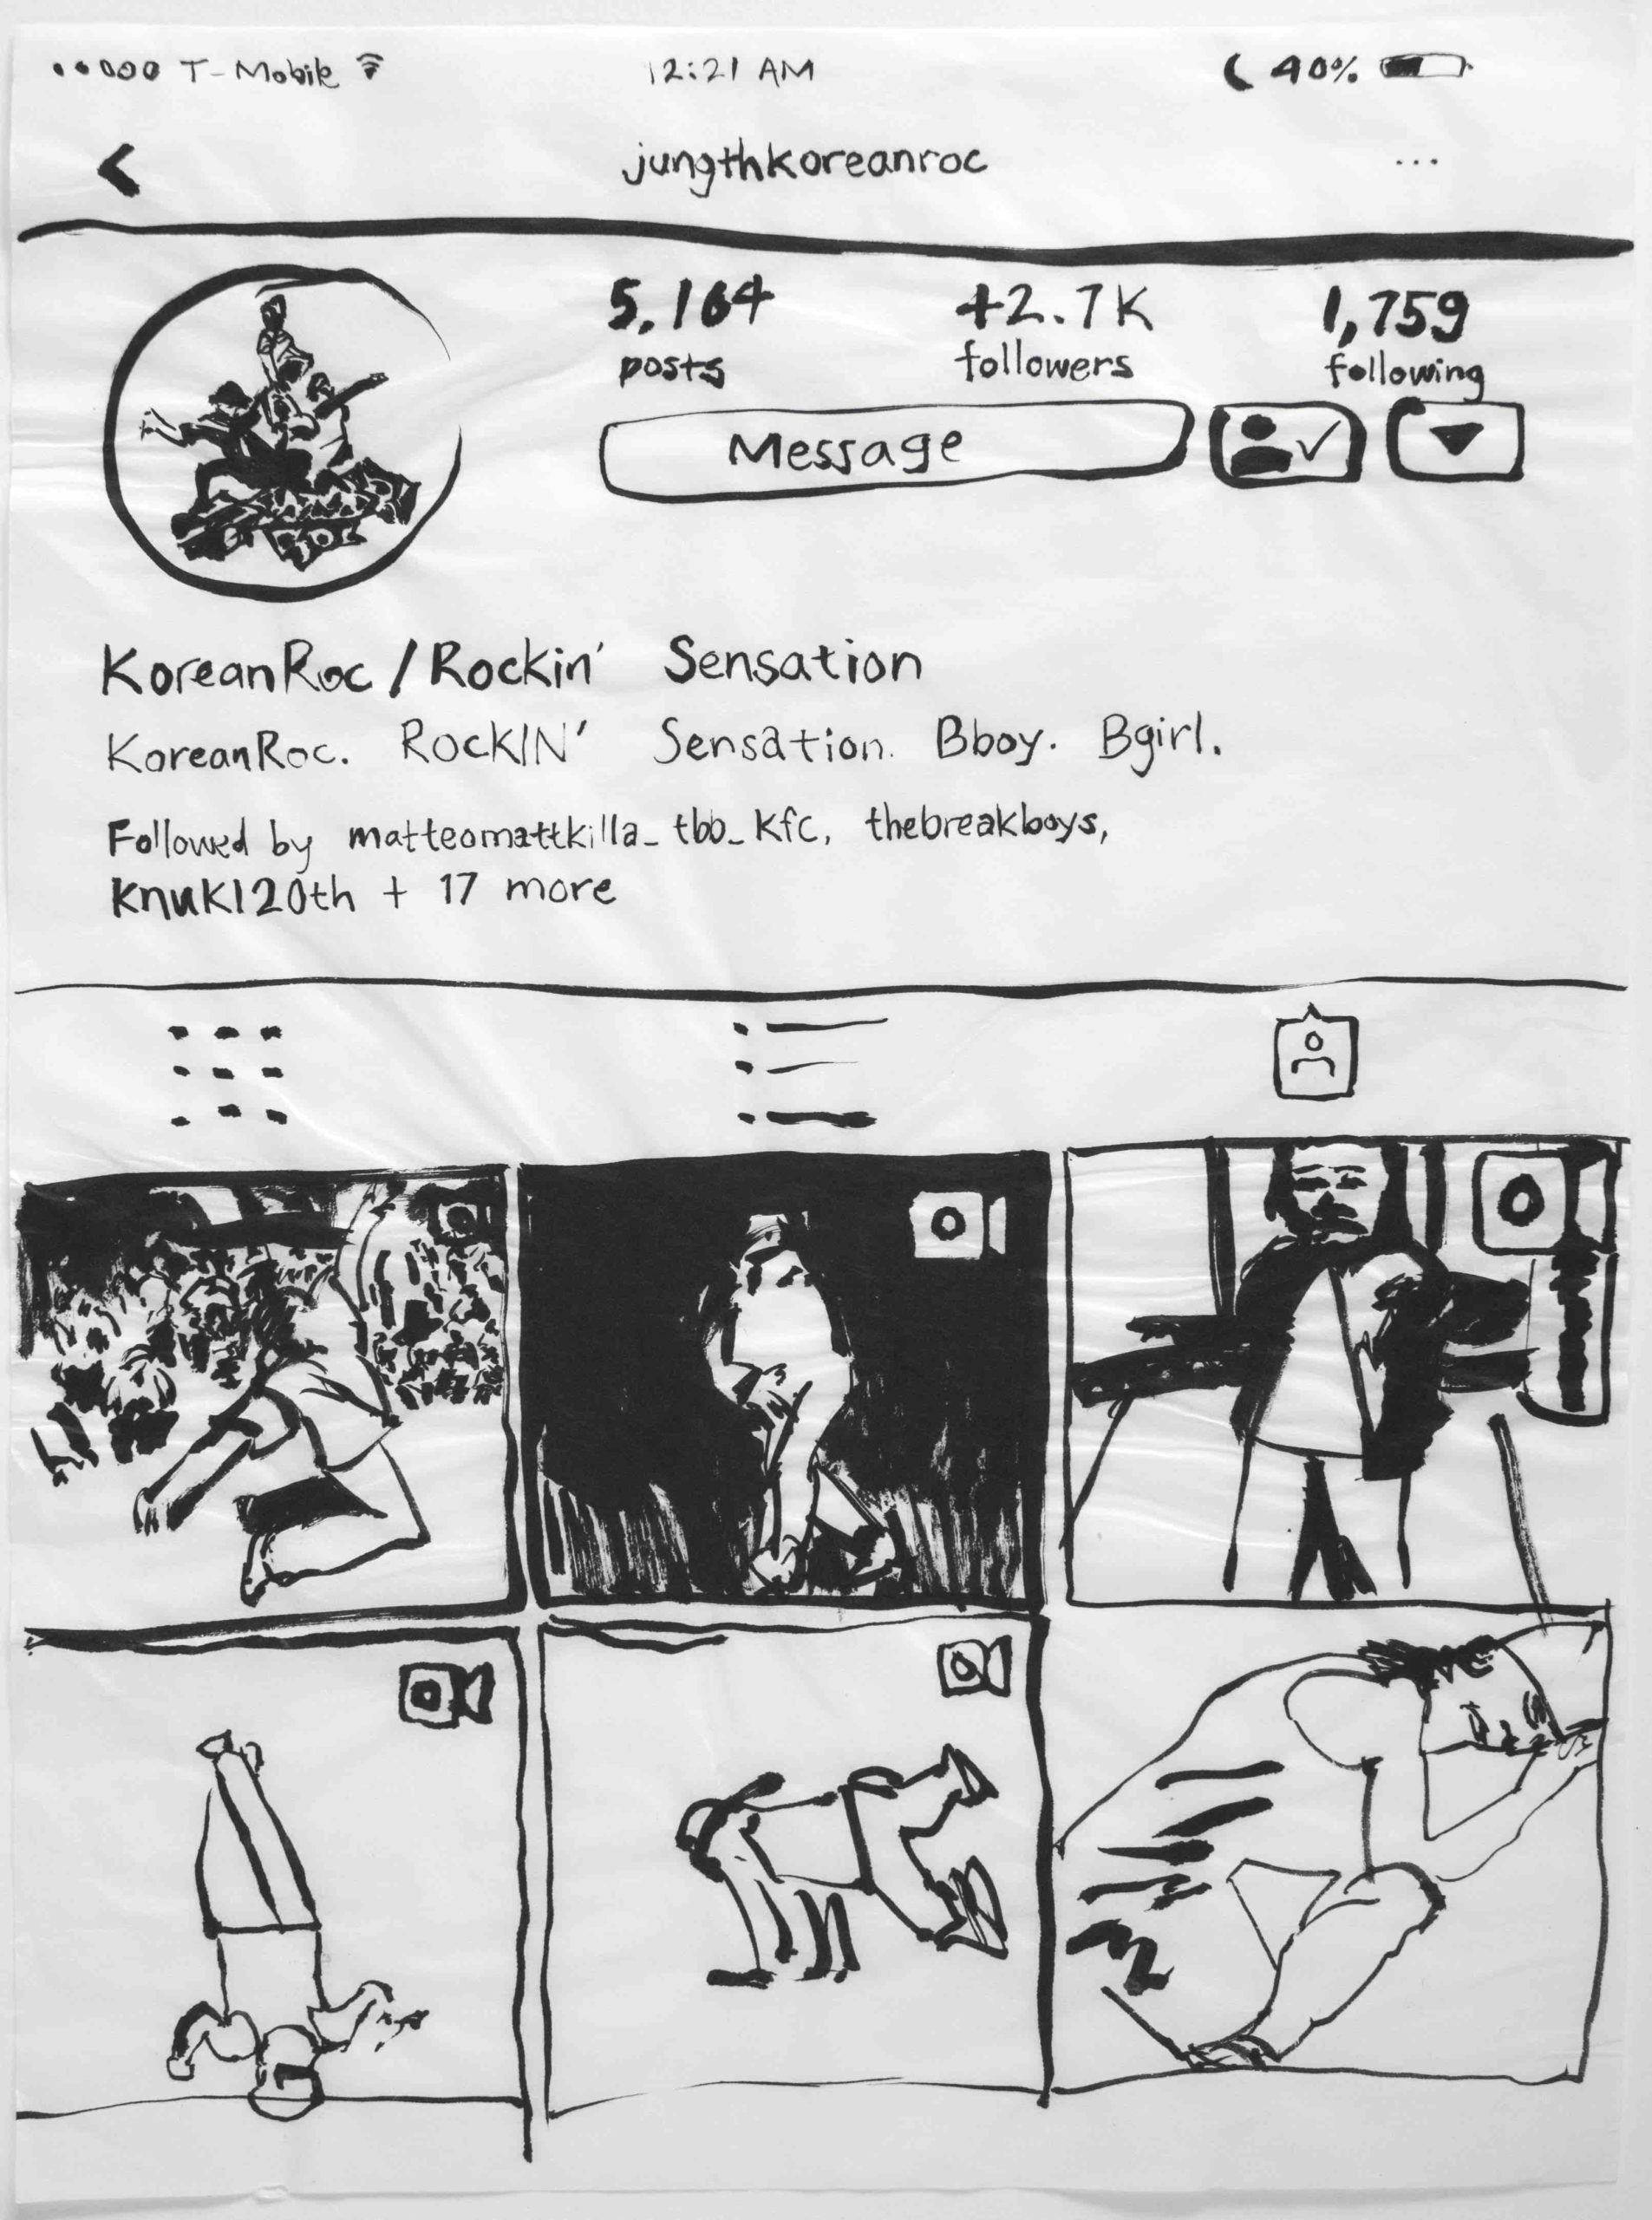 T-Mobile 12:21 AM 40%
jungthkoreanroc ...
5,164 42.7K 1,759
posts followers following
Message
KoreanRoc / Rockin' Sensation
KoreanRoc. ROCKIN' Sensation. Bboy. Bgirl.
Followed by matteomattkilla_tbb_kfc, thebreakboys,
knukl20th + 17 more